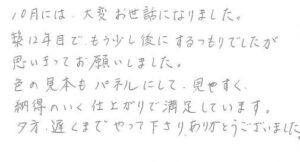 10月には、大変お世話になりました。
築12年目で、もう少し後にするつもりでしたが
思いきってお願いしました。
色の見本もパネルにして、見やすく、
納得のいく仕上がりで満足しています。
夕方、遅くまでやって下さりありがとうございました。